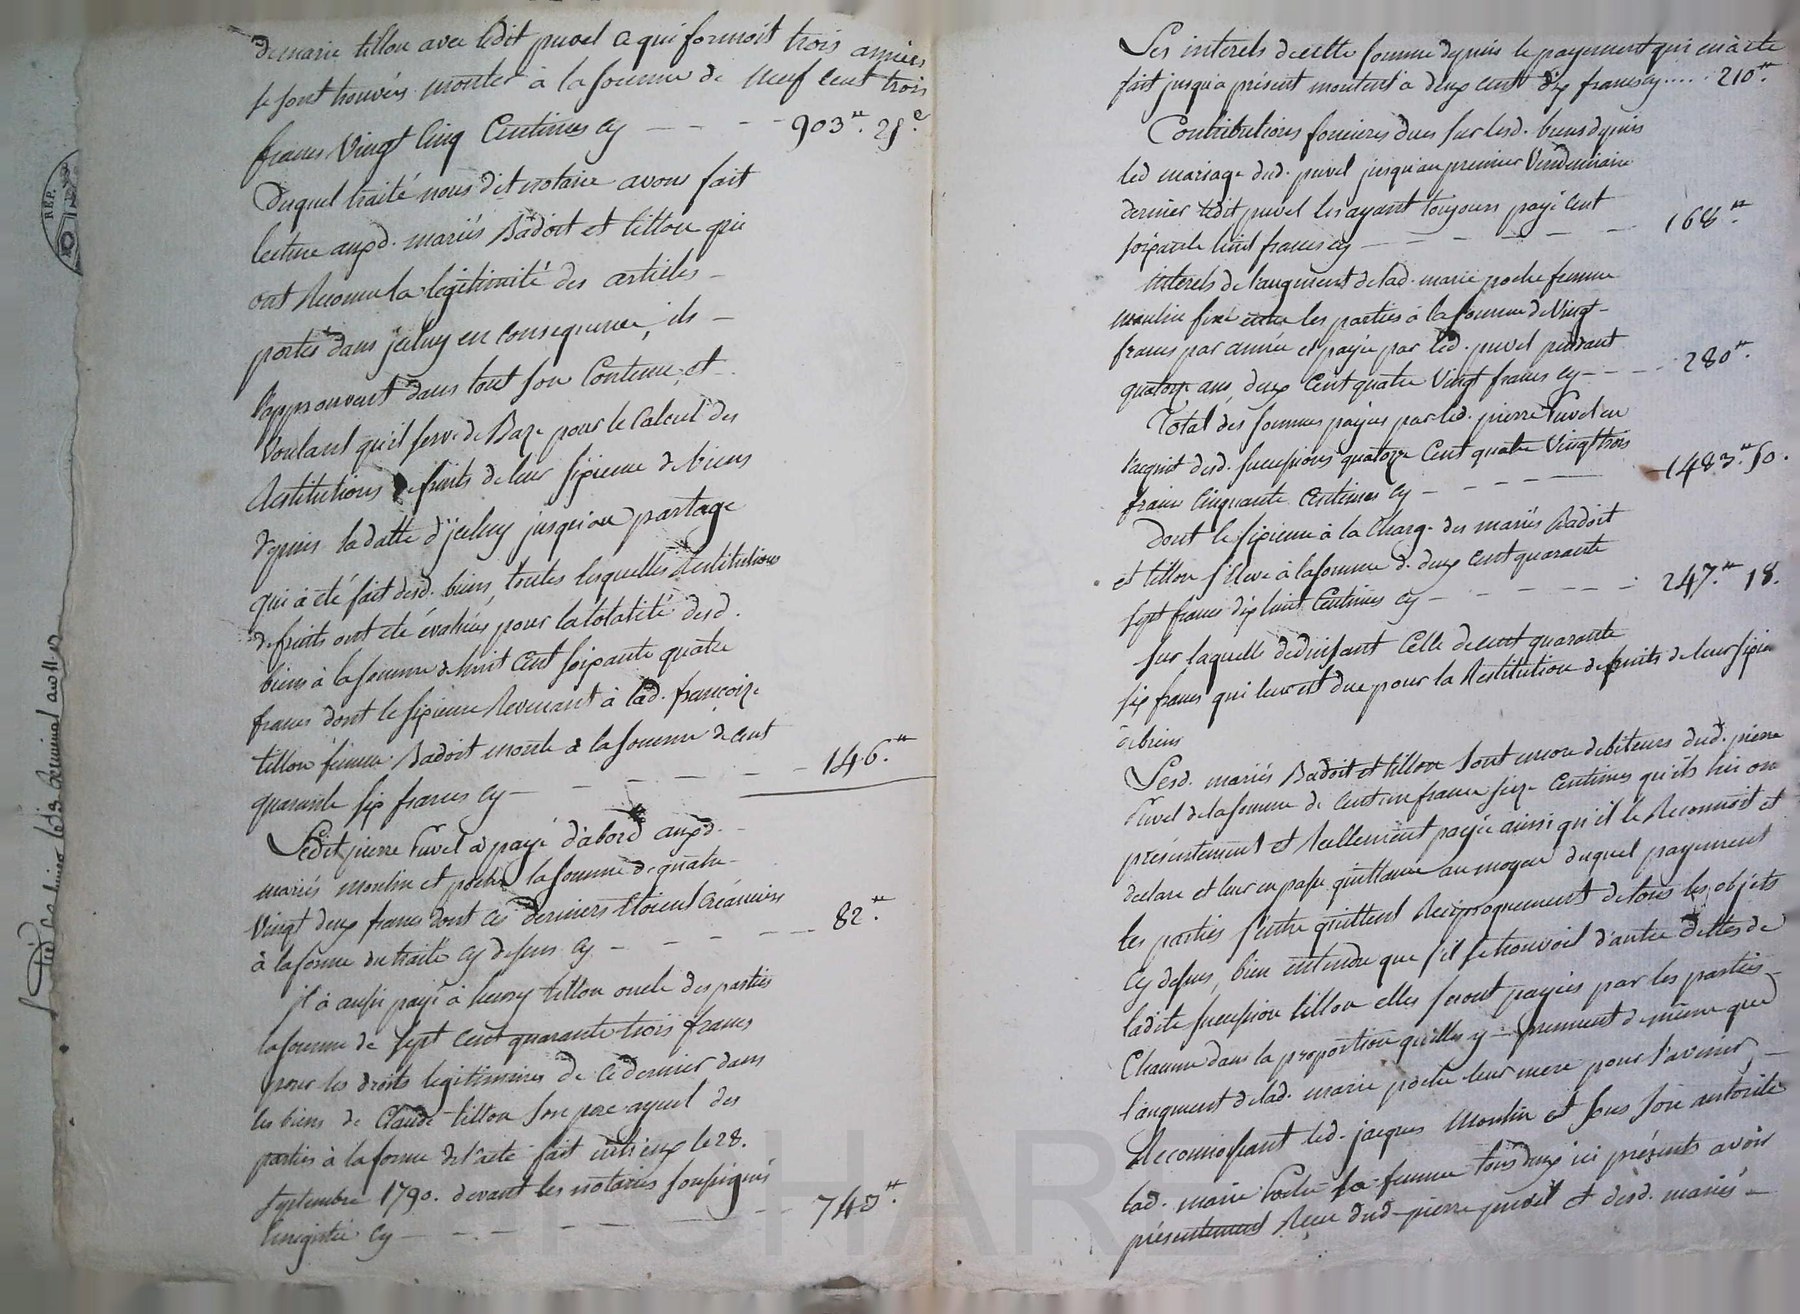 de marie tillon avec ledit puvel a qui formoit trois années
se sont trouvés monter à la somme de neuf cent trois
francs vingt cinq centimes cy - - - 903.# 25.c
Duquel traité nous dit notaire avons fait
lecture auxd. mariés Badoit et tillon qui
ont Reconnu la légitimité des articles -
portés dans jceluy en consequence, ils -
l'approuvent dans tout son contenu, et -
voulant qu'il serve de Baze pour le Calcul des
Restitutions de fruits de leur sixieme de biens
depuis la datte d'jceluy jusqu'au partage
qui à été fait desd. biens, toutes lesquelles Restitutions
de fruits ont été évaluées pour la totalité desd.
biens à la somme de huit cent soixante quatre
francs dont le sixieme Revenant à lad. françoize
tillon femme Badoit monte à la somme de cent
quarante six francs cy - - - - - 146.#
Ledit pierre Puvel à payé d'abord auxd.
mariés moulin et poche la somme de quatre
vingt deux francs dont ces derniers étoient créanciers
à la forme du traité cy dessus cy - - - - - 82.#
jl à aussi payé à henry tillon oncle des parties
la somme de sept cent quarante trois francs
pour les droits legitimaires de ce dernier dans
les biens de Claude tillon son pere ayeul des
parties à la forme de l'acte fait entr'eux le 28.
Septembre 1790. devant les notaires soussignés
Enregistré cy - - - - - 743.#
Les interels de cette somme depuis le payement qui en à été
fait jusqu'a présent montent à deux cent dix francs cy.... 210.#
Contributions foncieres dues sur lesd. biens depuis
led mariage dud. puvel jusqu'au premier Vendemiaire
dernier ledit puvel les ayant toujours payé cent
soixante huit francs cy - - - - - 168.#
interels de l'augment de lad. marie poche femme
moulin fixé entre les parties à la somme de Vingt -
francs par année et payée par led. puvel pendant
quatorze ans, deux cent quatre vingt francs cy - - - 280.#
Total des sommes payées par led. pierre Puvel en
l'acquit desd. successions quatorze cent quatre vingt trois
francs cinquante centimes cy - - - - - 1483.# 50.
Dont le sixieme à la charge des mariés Badoit
et tillon s'éleve à la somme de deux cent quarante
sept francs dix huit centimes cy - - - - - 247.# 18.
sur laquelle deduisant celle de cent quarante
six francs qui leur est due pour la Restitution de fruits de leur sixieme
de biens
Lesd. mariés Badoit et tillon sont encore debiteurs dud. pierre
Puvel de la somme de cent un francs seize centimes qu'ils lui ont
présentement et Reellement payée ainsi qu'il le Reconnoit et
declare et leur en passe quittance au moyen duquel payement
les parties s'entre quittent Reciproquement de tous les objets
cy dessus, bien entendu que s'il se trouvoit d'autre dettes de
ladite succession tillon elles seront payées par les parties -
chacune dans la proportion qu'elles y prennent de même que
l'augment de lad. marie poche leur mere pour l'avenir, -
Reconnoissant led. jacques Moulin et sous son autorité
lad. marie Poche sa femme tous deux ici présents avoir
présentement Reçu dud pierre puvel et desd. mariés -